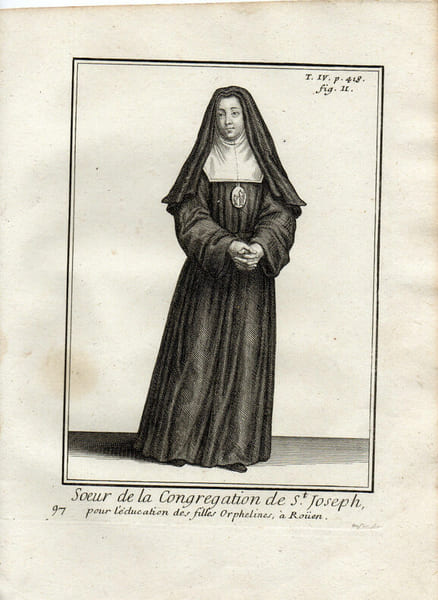 T. IV. p. 418.
fig. II.
Sœur de la Congregation de S.t Joseph,
97 pour l'éducation des filles Orphelines, à Roüen.